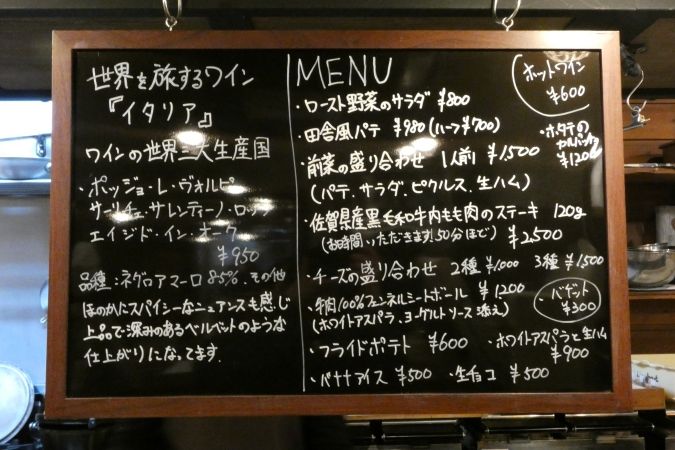 世界を旅するワイン
『イタリア』
ワインの世界三大生産国
・ポッジョ・レ・ヴォルピ
サーリチェ・サレンティーノ・ロッソ
エイジド・イン・オーク
¥950
品種：ネグロアマーロ 85%、その他
ほのかにスパイシーなニュアンスも感じ
上品で深みのあるベルベットのような
仕上がりになってます。
MENU
・ロースト野菜のサラダ ¥800
・田舎風パテ ¥980(ハーフ¥700)
・前菜の盛り合わせ 1人前 ¥1,500
(パテ、サラダ、ピクルス、生ハム)
・佐賀県産黒毛和牛内もも肉のステーキ 120g
(お時間いただきます!50分ほど) ¥2,500
・チーズの盛り合わせ 2種 ¥1,000 3種 ¥1,500
・牛肉100%フェンネルミートボール ¥1,200
(ホワイトアスパラ、ヨーグルトソース添え)
・フライドポテト ¥600
・ホワイトアスパラと生ハム
¥900
・バナナアイス ¥500 ・生チョコ ¥500
ホットワイン
¥600
・ホタテの
カルパッチョ
¥1200
・バゲット
¥300